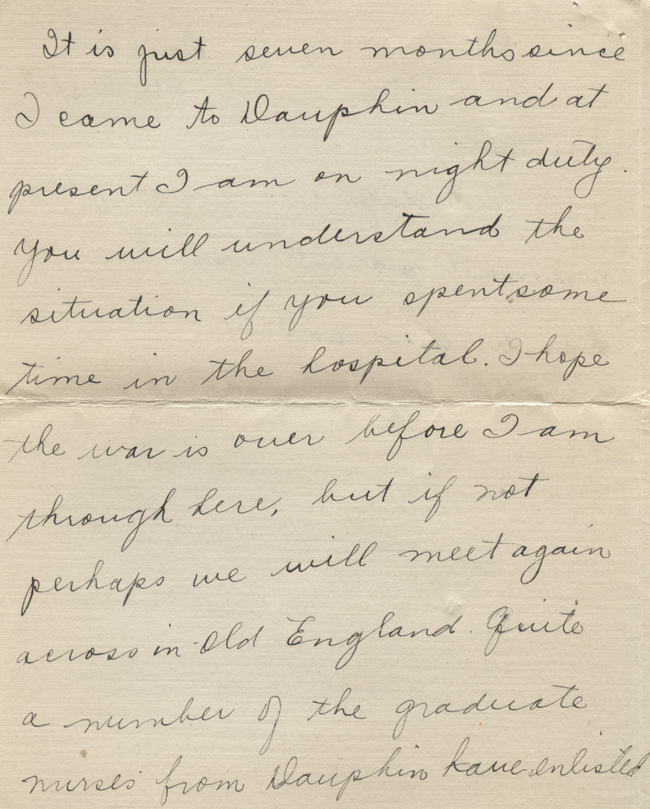 It is just seven months since
I came to Dauphin and at
present I am on night duty.
You will understand the
situation if you spent some
time in the hospital. I hope
the war is over before I am
through here, but if not
perhaps we will meet again
across in Old England. Quite
a number of the graduate
nurses from Dauphin have enlisted